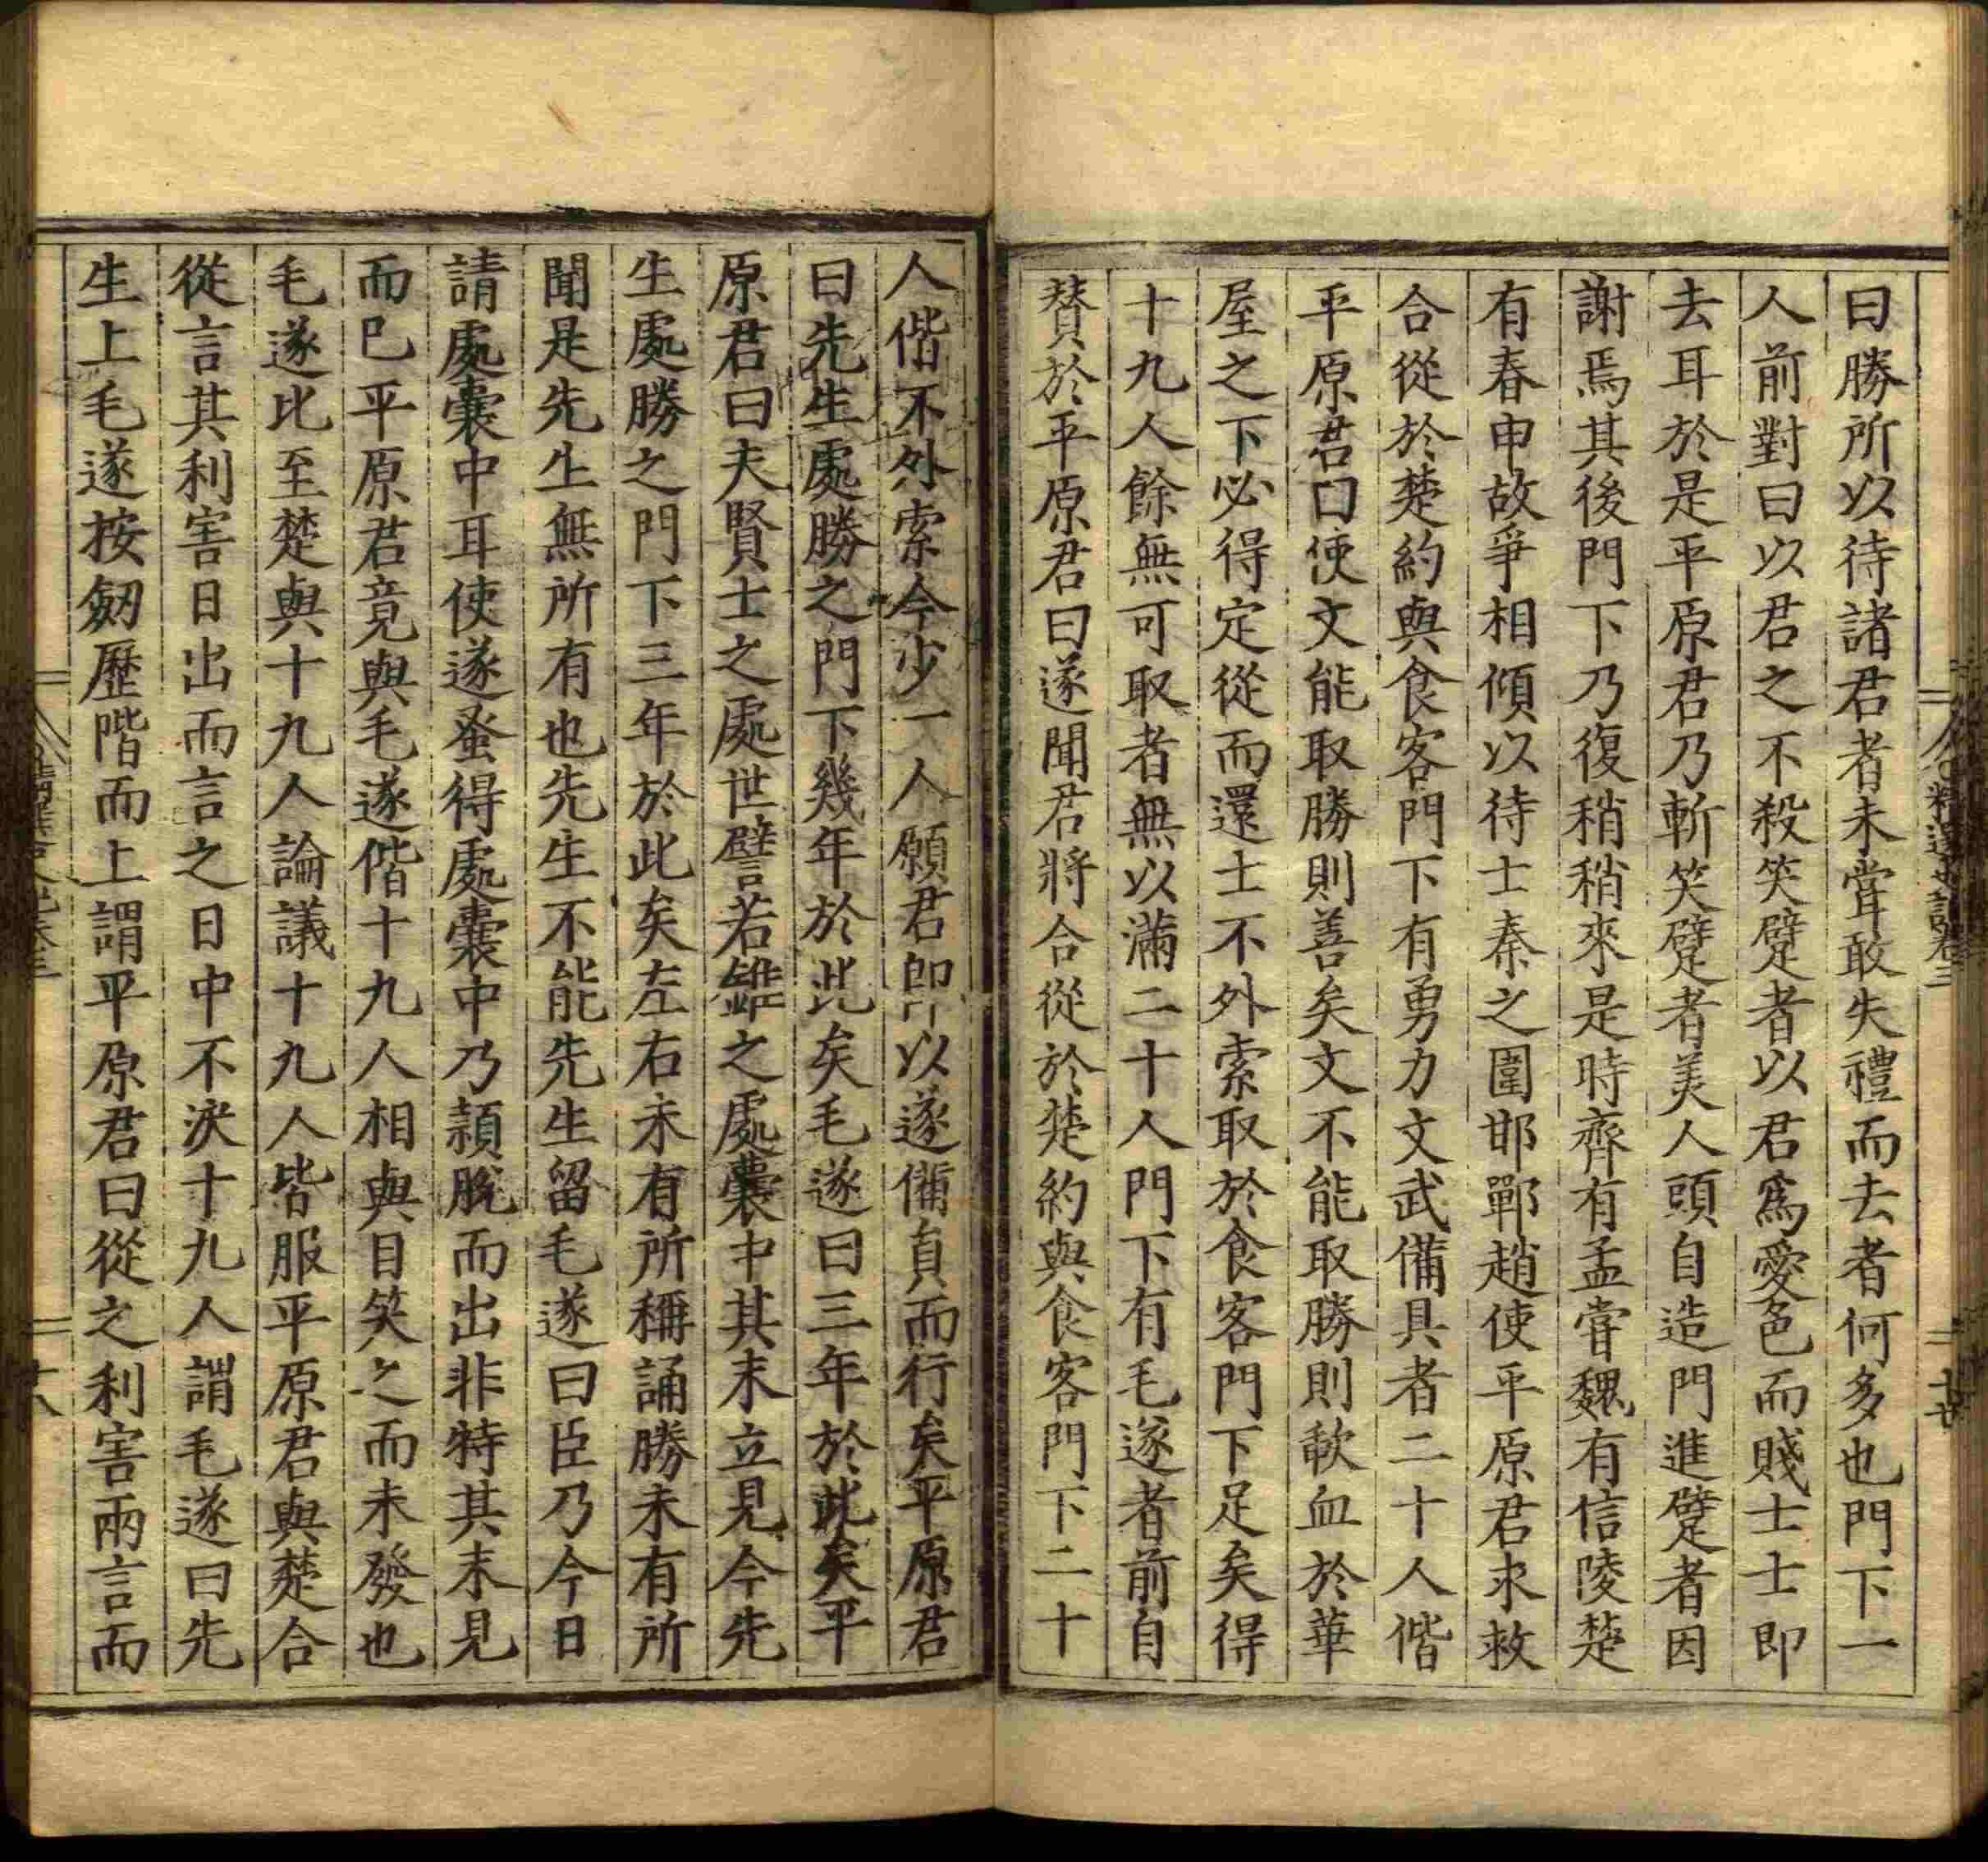 曰勝所以待諸君者未甞敢失禮而去者何多也門下一
人前對曰以君之不殺笑躄者以君爲愛色而賤士士即
去耳於是平原君乃斬笑躄者美人頭自造門進躄者因
謝焉其後門下乃復稍稍來是時齊有孟甞魏有信陵楚
有春申故爭相傾以待士秦之圍邯鄲趙使平原君求救
合從於楚約與食客門下有勇力文武備具者二十人偕
平原君曰使文能取勝則善矣文不能取勝則歃血於華
屋之下必得定從而還士不外索取於食客門下足矣得
十九人餘無可取者無以滿二十人門下有毛遂者前自
賛於平原君曰遂聞君將合從於楚約與食客門下二十
精選史記卷三
人偕不外索今少一人願君即以遂備負而行矣平原君
曰先生處勝之門下幾年於此矣毛遂曰三年於此矣平
原君曰夫賢士之處世譬若錐之處囊中其末立見今先
生處勝之門下三年於此矣左右未有所稱誦勝未有所
聞是先生無所有也先生不能先生留毛遂曰臣乃今日
請處囊中耳使遂蚤得處囊中乃頴脫而出非特其末見
而已平原君竟與毛遂偕十九人相與目笑之而未發也
毛遂比至楚與十九人論議十九人皆服平原君與楚合
從言其利害日出而言之日中不决十九人謂毛遂曰先
生上毛遂按劒歷階而上謂平原君曰從之利害兩言而
十八